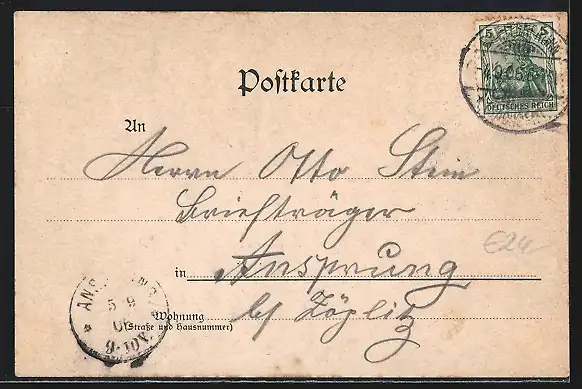 5 5
DEUTSCHES REICH
Postkarte
An
Herrn Otto Stein
Briefträger
in Ansprung
Wohnung
(Straße und Hausnummer)
by Zöplitz
E24
5 9
06
9-10V.